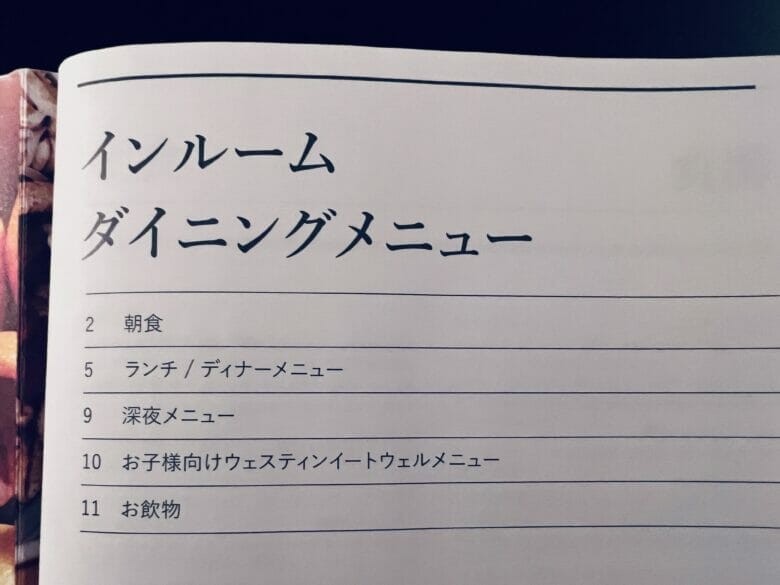 インルーム
ダイニングメニュー
2 朝食
5 ランチ / ディナーメニュー
9 深夜メニュー
10 お子様向けウェスティンイートウェルメニュー
11 お飲物